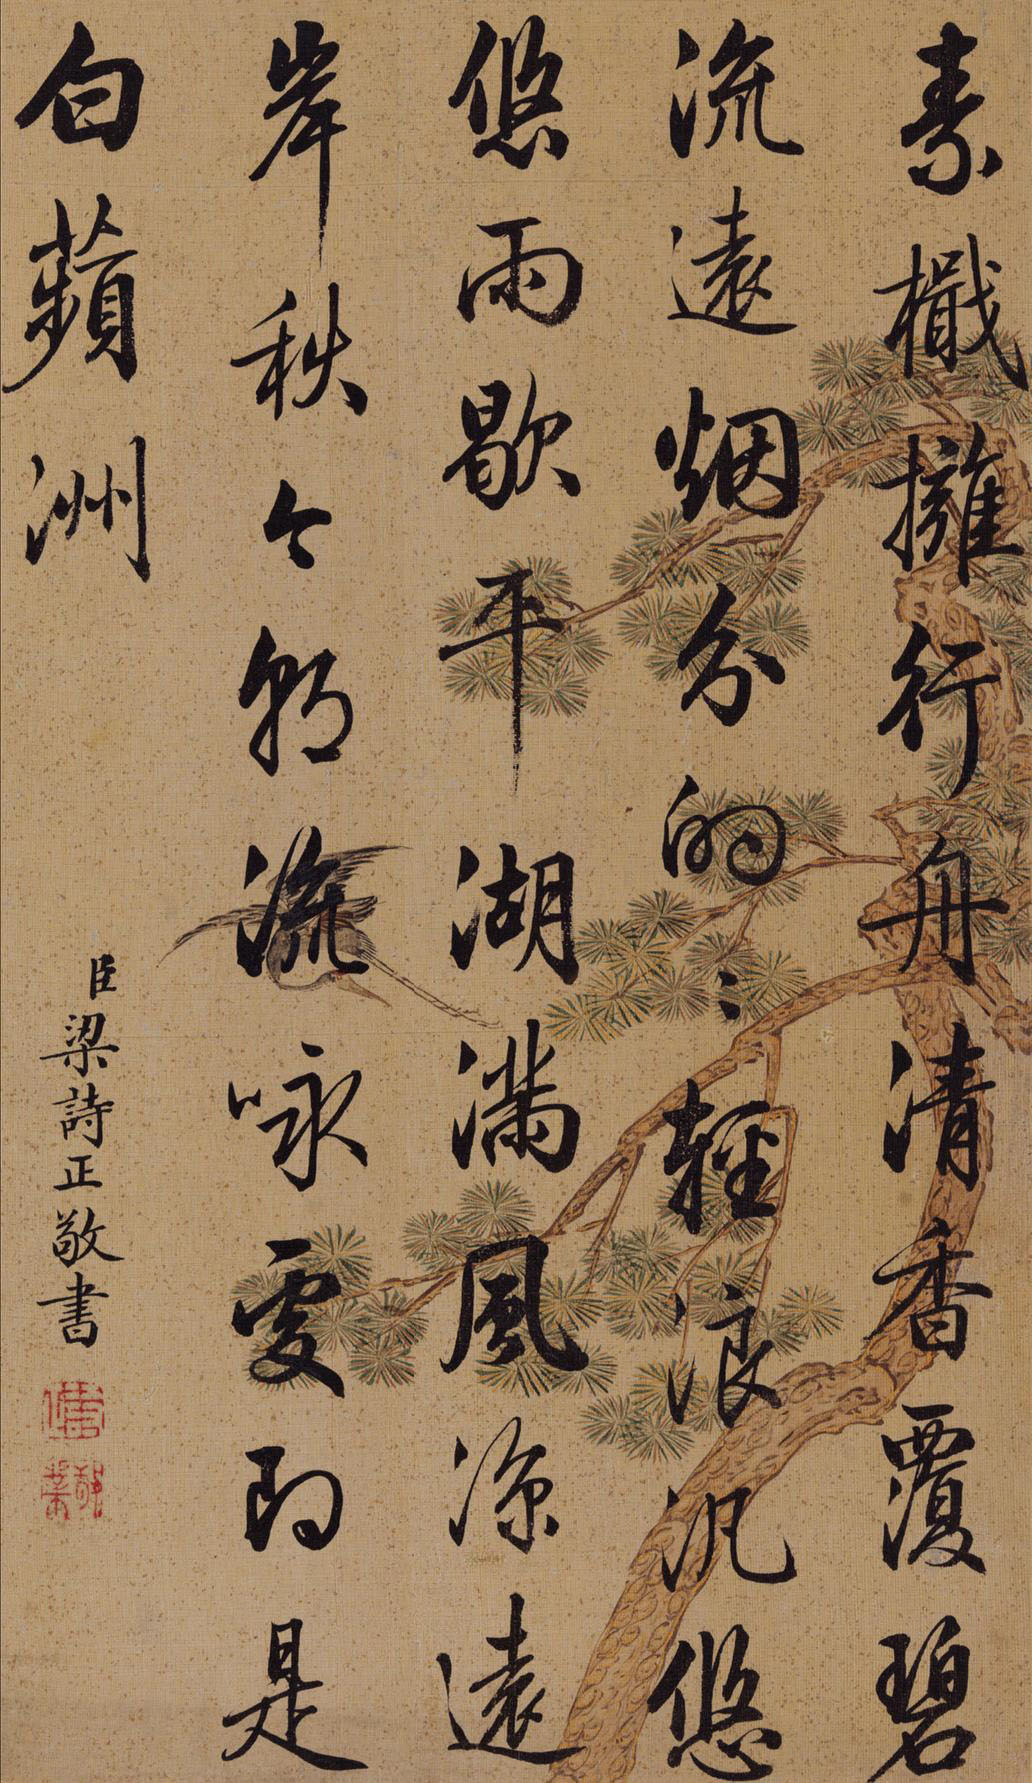 素檝擁行舟清香覆碧
流遠烟分的〻輕浪汎悠
悠雨歇平湖滿風凉遠
岸秋今朝流咏處即是
白蘋洲
臣梁詩正敬書